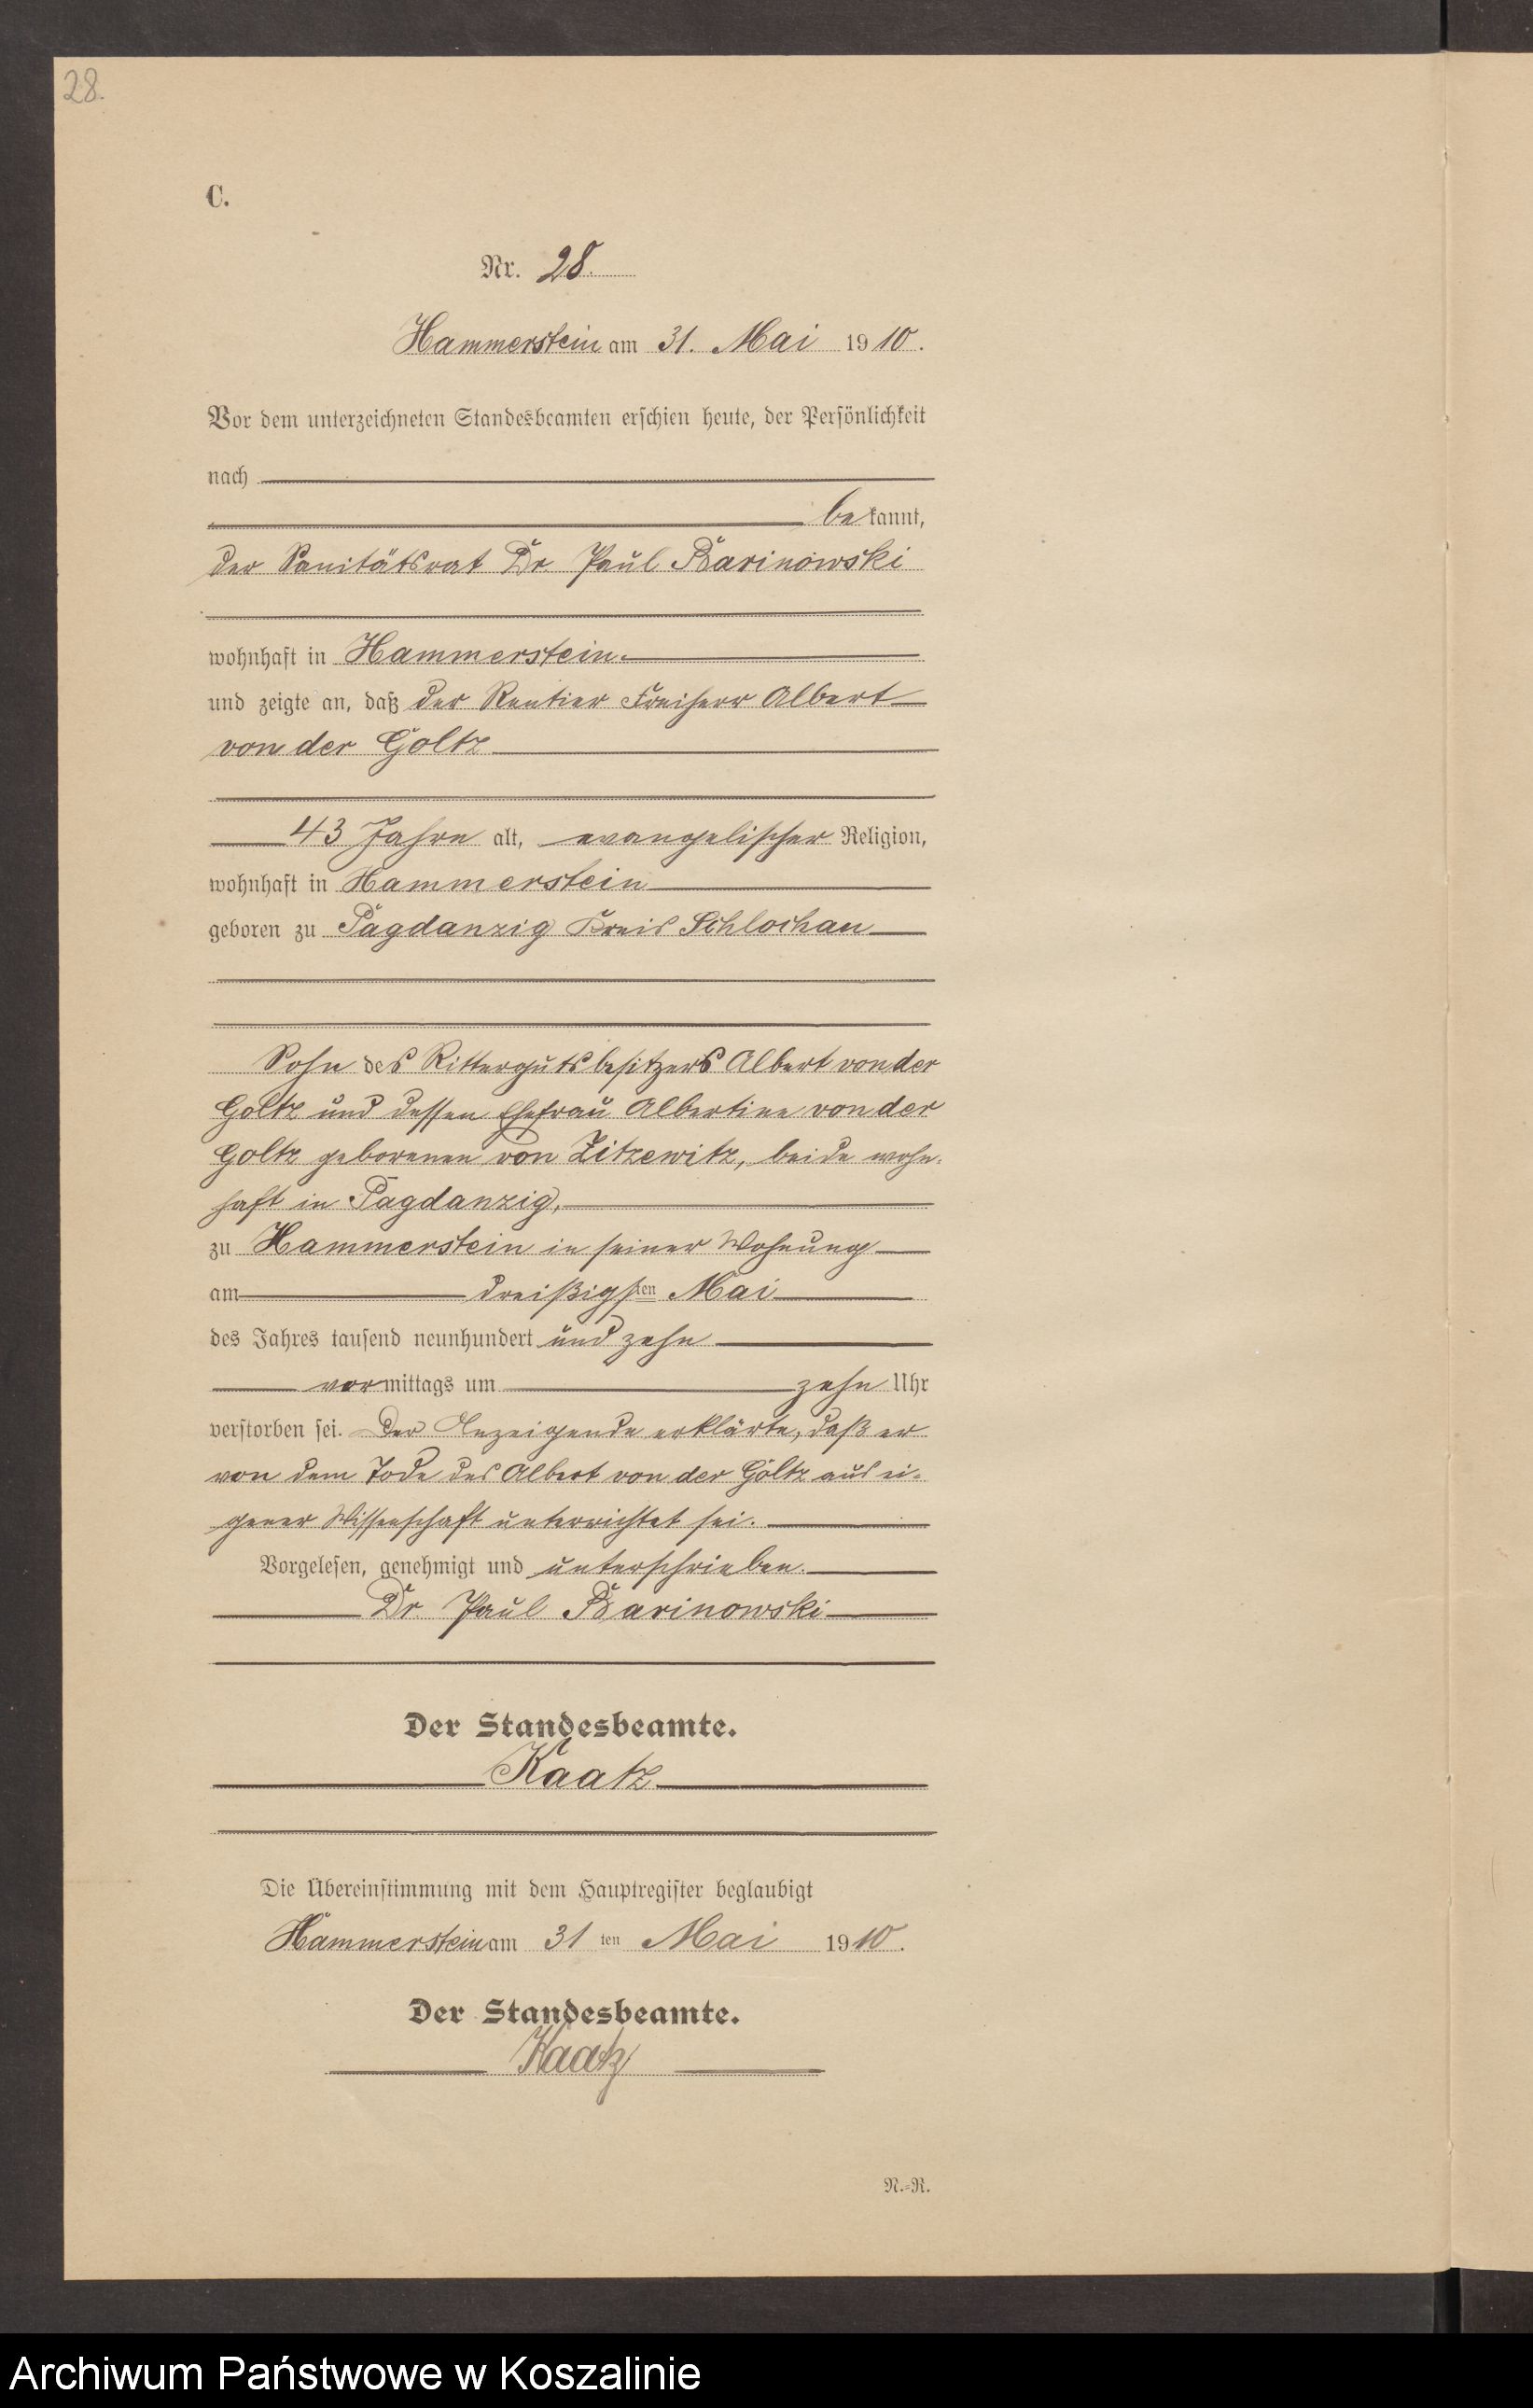 28.
C.
Nr. 28.
Hammerstein am 31. Mai 1910.
Vor dem unterzeichneten Standesbeamten erschien heute, der Persönlichkeit
nach
bekannt,
der Sanitätsrat Dr Paul Barinowski
wohnhaft in Hammerstein.
und zeigte an, daß der Rentier Freiherr Albert
von der Goltz
43 Jahre alt, evangelischer Religion,
wohnhaft in Hammerstein
geboren zu Pagdanzig Kreis Schlochau
Sohn des Rittergutsbesitzers Albert von der
Goltz und dessen Ehefrau Albertine von der
Goltz geborenen von Zitzewitz, beide wohn-
haft in Pagdanzig,
zu Hammerstein in seiner Wohnung
am dreißigsten Mai
des Jahres tausend neunhundert und zehn
vormittags um zehn Uhr
verstorben sei. Der Anzeigende erklärte, daß er
von dem Tode des Albert von der Goltz aus ei-
gener Wissenschaft unterrichtet sei.
Vorgelesen, genehmigt und unterschrieben.
Dr. Paul Barinowski
Der Standesbeamte.
Kaatz
Die Übereinstimmung mit dem Hauptregister beglaubigt
Hammerstein am 31 ten Mai 1910.
Der Standesbeamte.
Kaatz
N.-R.
Archiwum Państwowe w Koszalinie